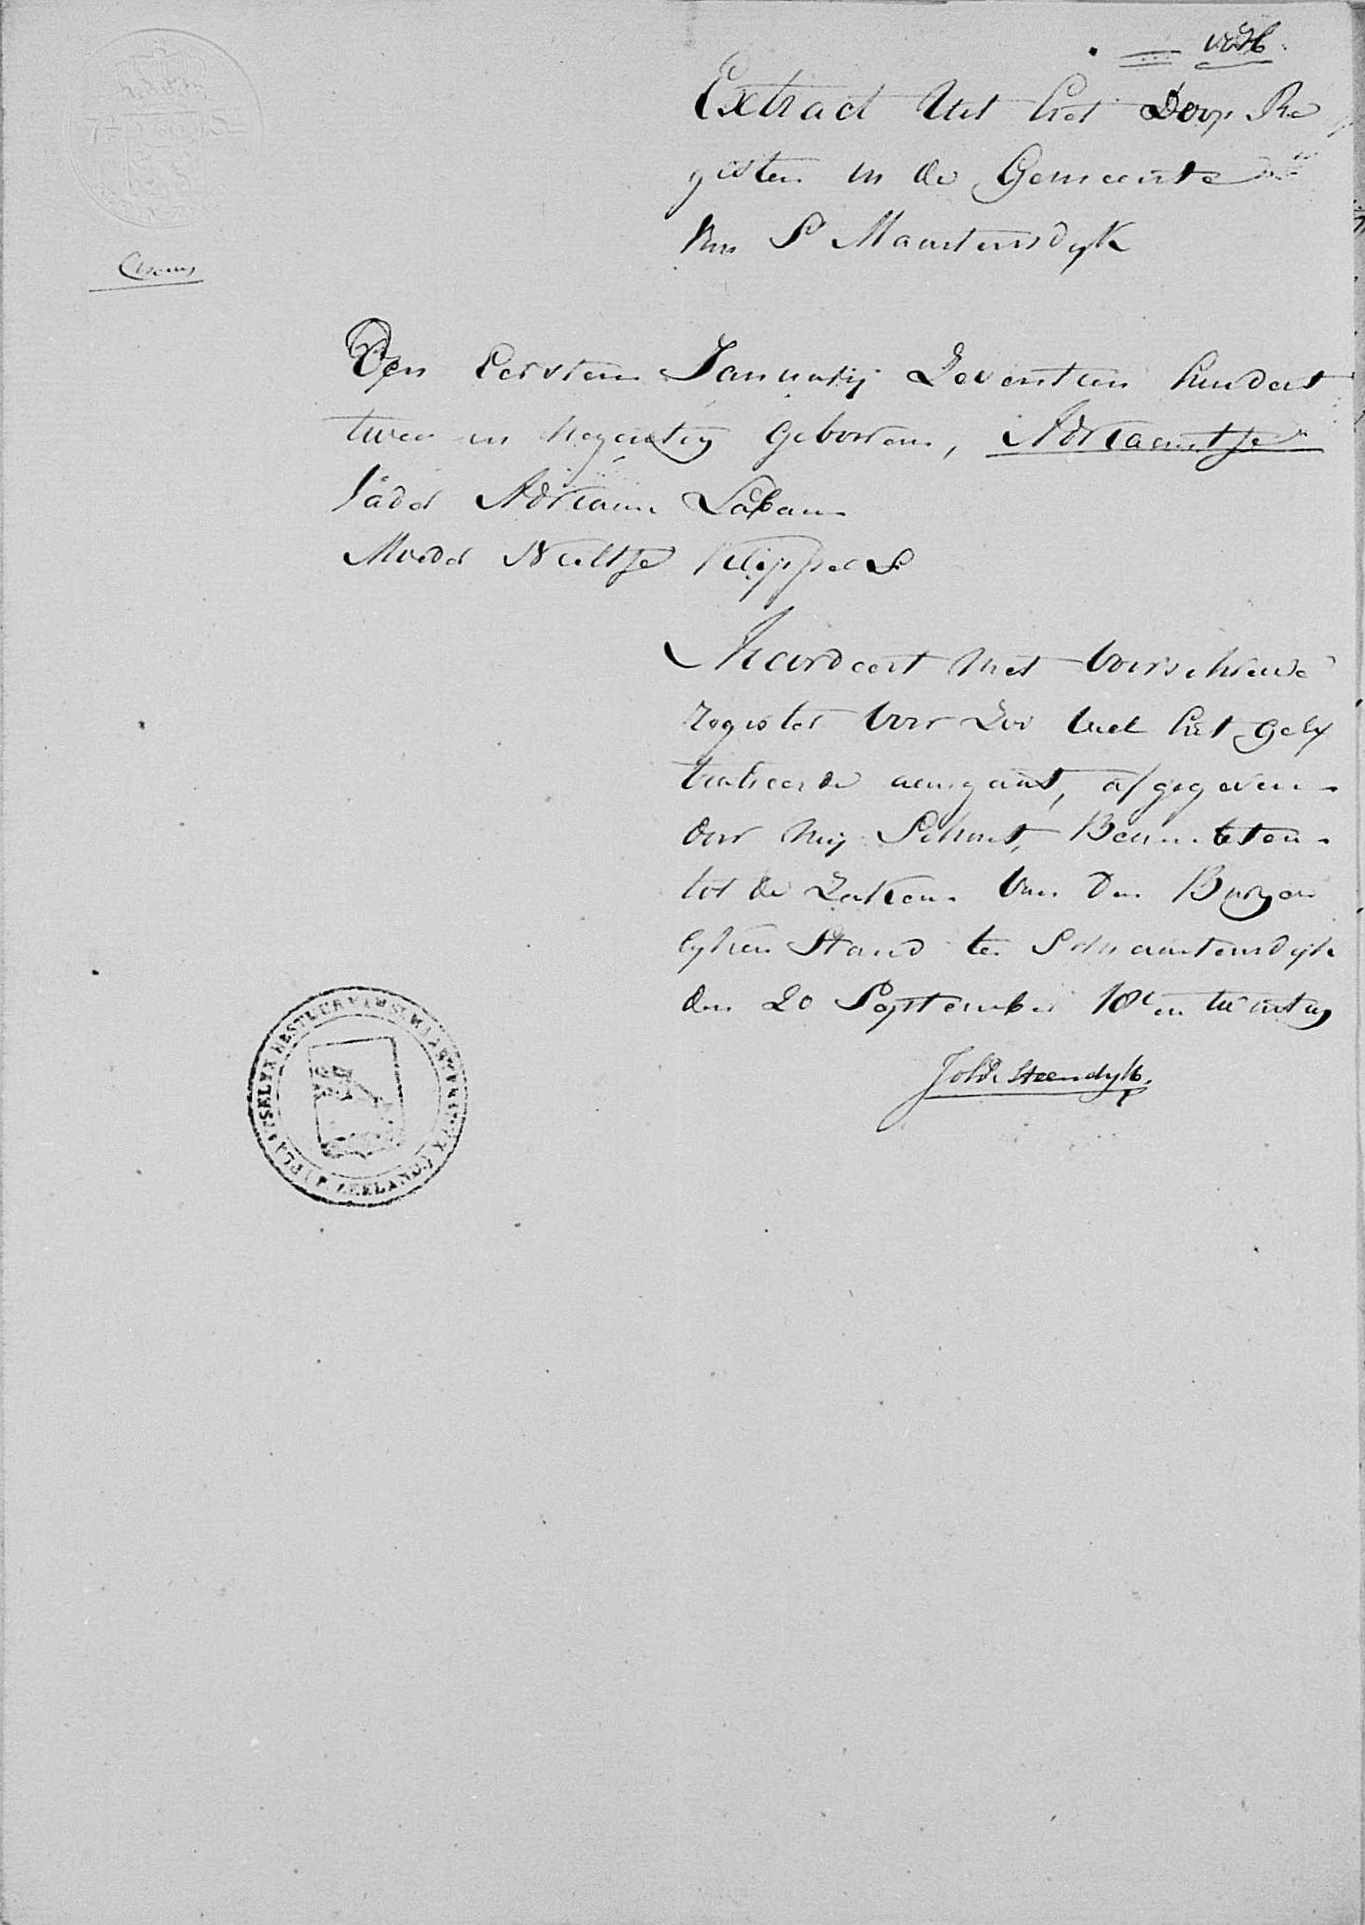 Extract Uit het Doop Re
gister in de Gemeente
van St Maartensdyk
Den Eersten Januarij Zeventien hundert
twee en negentig Geboren, Adriaentje
Vader Adriaan Laban
Moeder Neeltje Klippels
Acordeert met Voorschreve
register voor Zoo veel het geëx
traheerde aengaat, afgegeven
door mij Schout, Beambten
tot de Zaken van den Burger
lyken Stand te St Maartensdyk
den 20 September 18c en twintig
PLAATSELYK BESTUUR VAN ST MAARTENSDYK (P. ZEELAND)